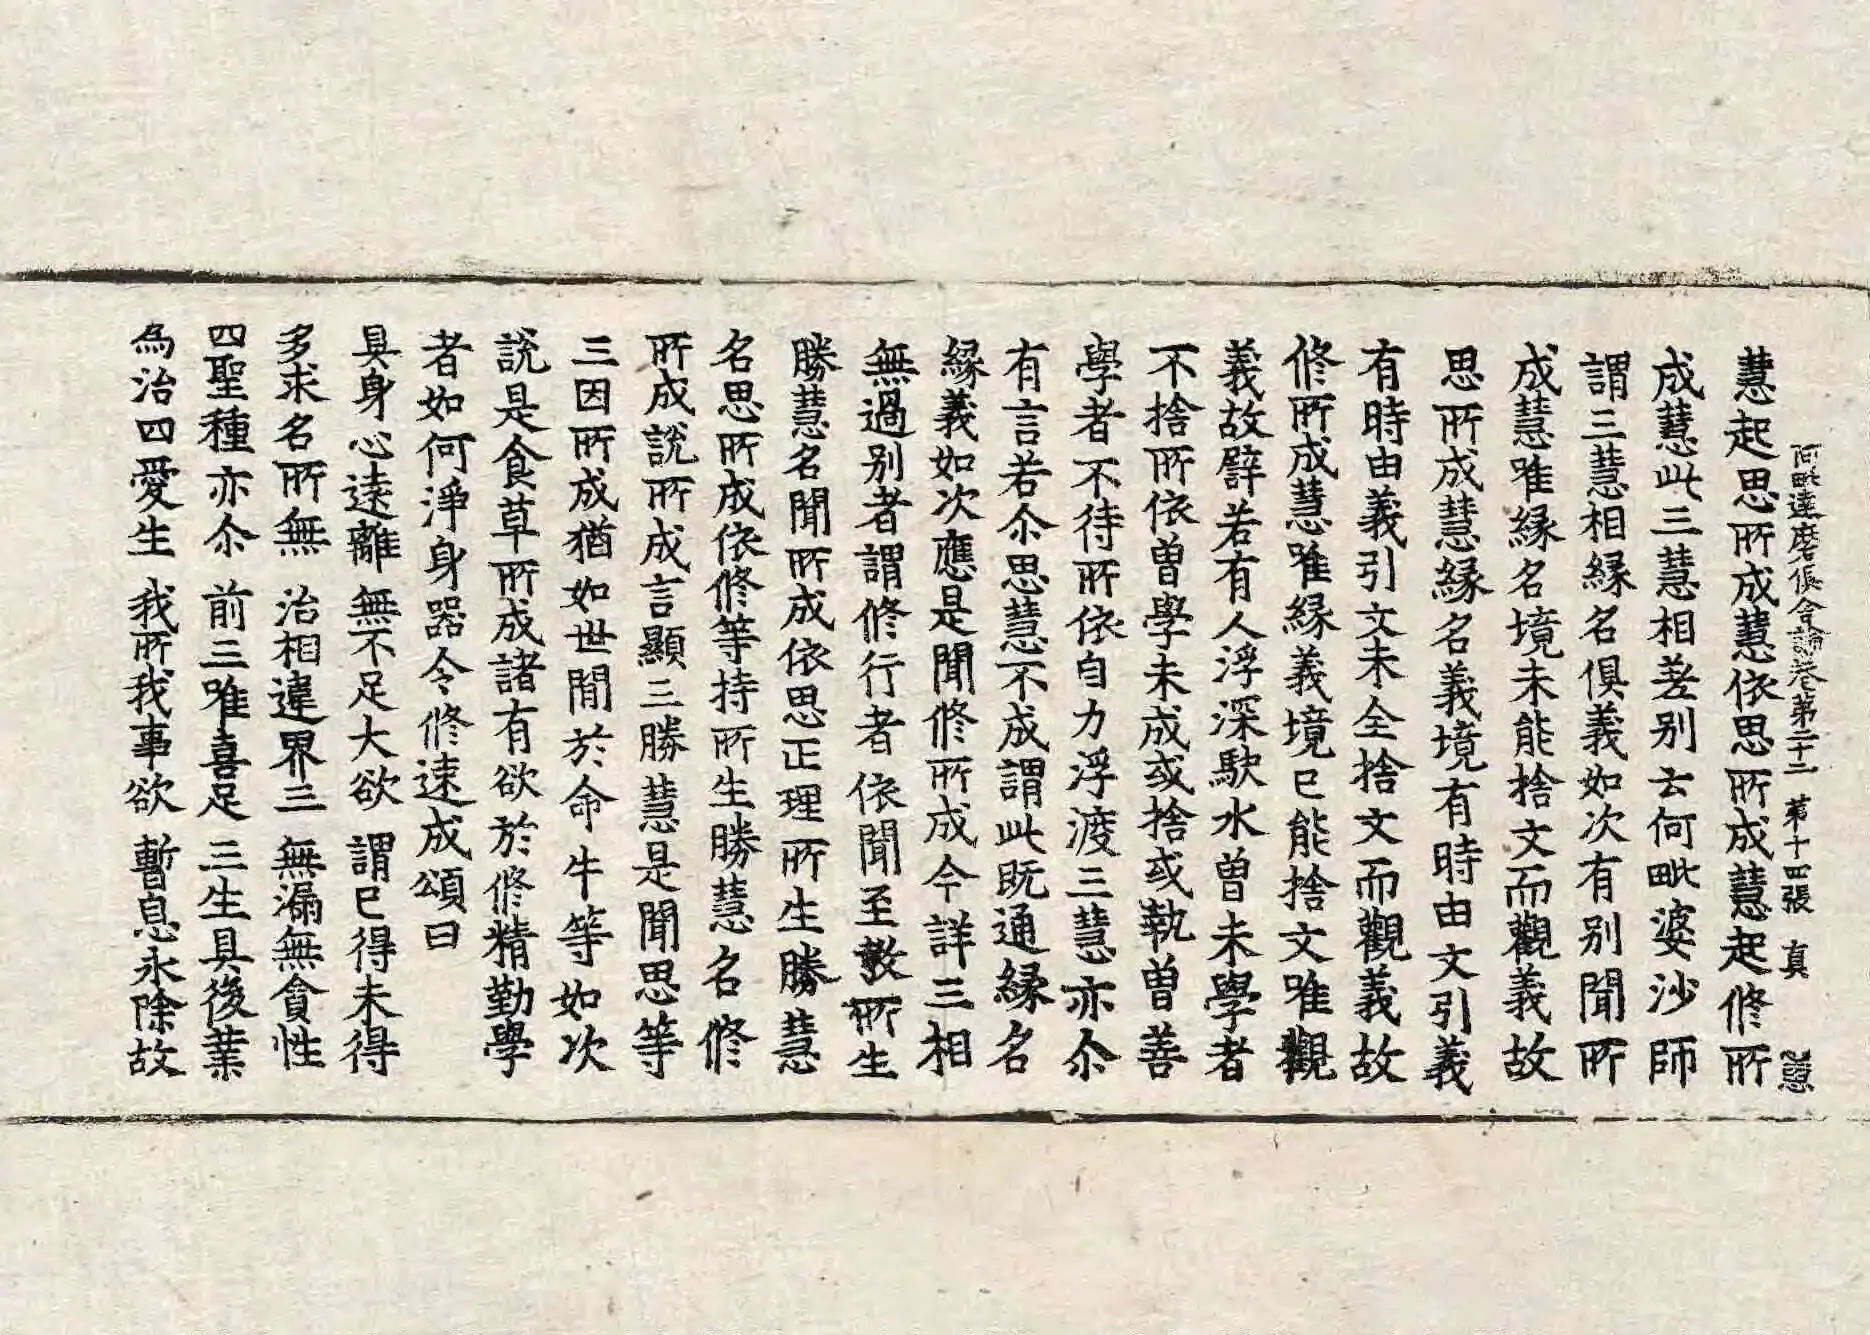 阿毗達磨俱舍論卷第二十二 第十四張 真 慧
慧起思所成慧依思所成慧起修所
成慧此三慧相差别云何毗婆沙師
謂三慧相緣名俱義如次有别聞所
成慧唯緣名境未能捨文而觀義故
思所成慧緣名義境有時由文引義
有時由義引文未全捨文而觀義故
修所成慧唯緣義境已能捨文唯觀
義故譬若有人浮深駛水曾未學者
不捨所依曾學未成或捨或執曾善
學者不待所依自力浮渡三慧亦尒
有言若尒思慧不成謂此既通緣名
緣義如次應是聞修所成今詳三相
無過别者謂修行者依聞至教所生
勝慧名聞所成依思正理所生勝慧
名思所成依修等持所生勝慧名修
所成說所成言顯三勝慧是聞思等
三因所成猶如世閒於命牛等如次
說是食草所成諸有欲於修精勤學
者如何淨身器令修速成頌曰
具身心遠離 無不足大欲 謂已得未得
多求名所無 治相違界三 無漏無貪性
四聖種亦尒 前三唯喜足 三生具後業
為治四愛生 我所我事欲 暫息永除故